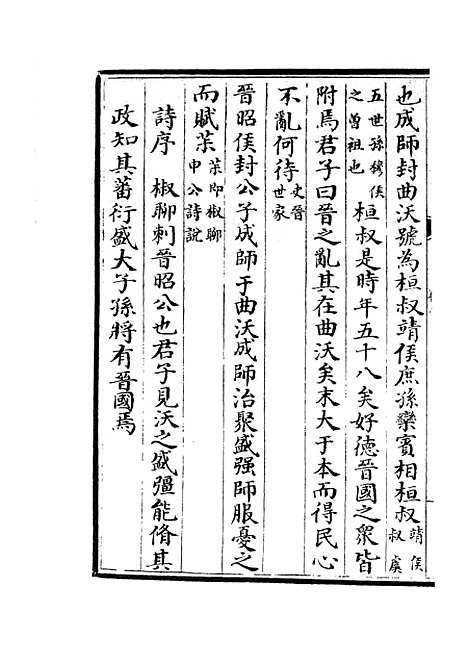 也成師封曲沃號為桓叔靖侯庶孫欒賓相桓叔靖侯叔虞
五世孫穆侯之曽祖也桓叔是時年五十八矣好徳晉國之衆皆
附焉君子曰晉之亂其在曲沃矣末大于本而得民心
不亂何待史晉世家
晉昭侯封公子成師于曲沃成師治聚盛强師服憂之
而賦茮茮即椒聊申公詩説
詩序　椒聊刺晉昭公也君子見沃之盛彊能脩其
政知其蕃衍盛大子孫將有晉國焉